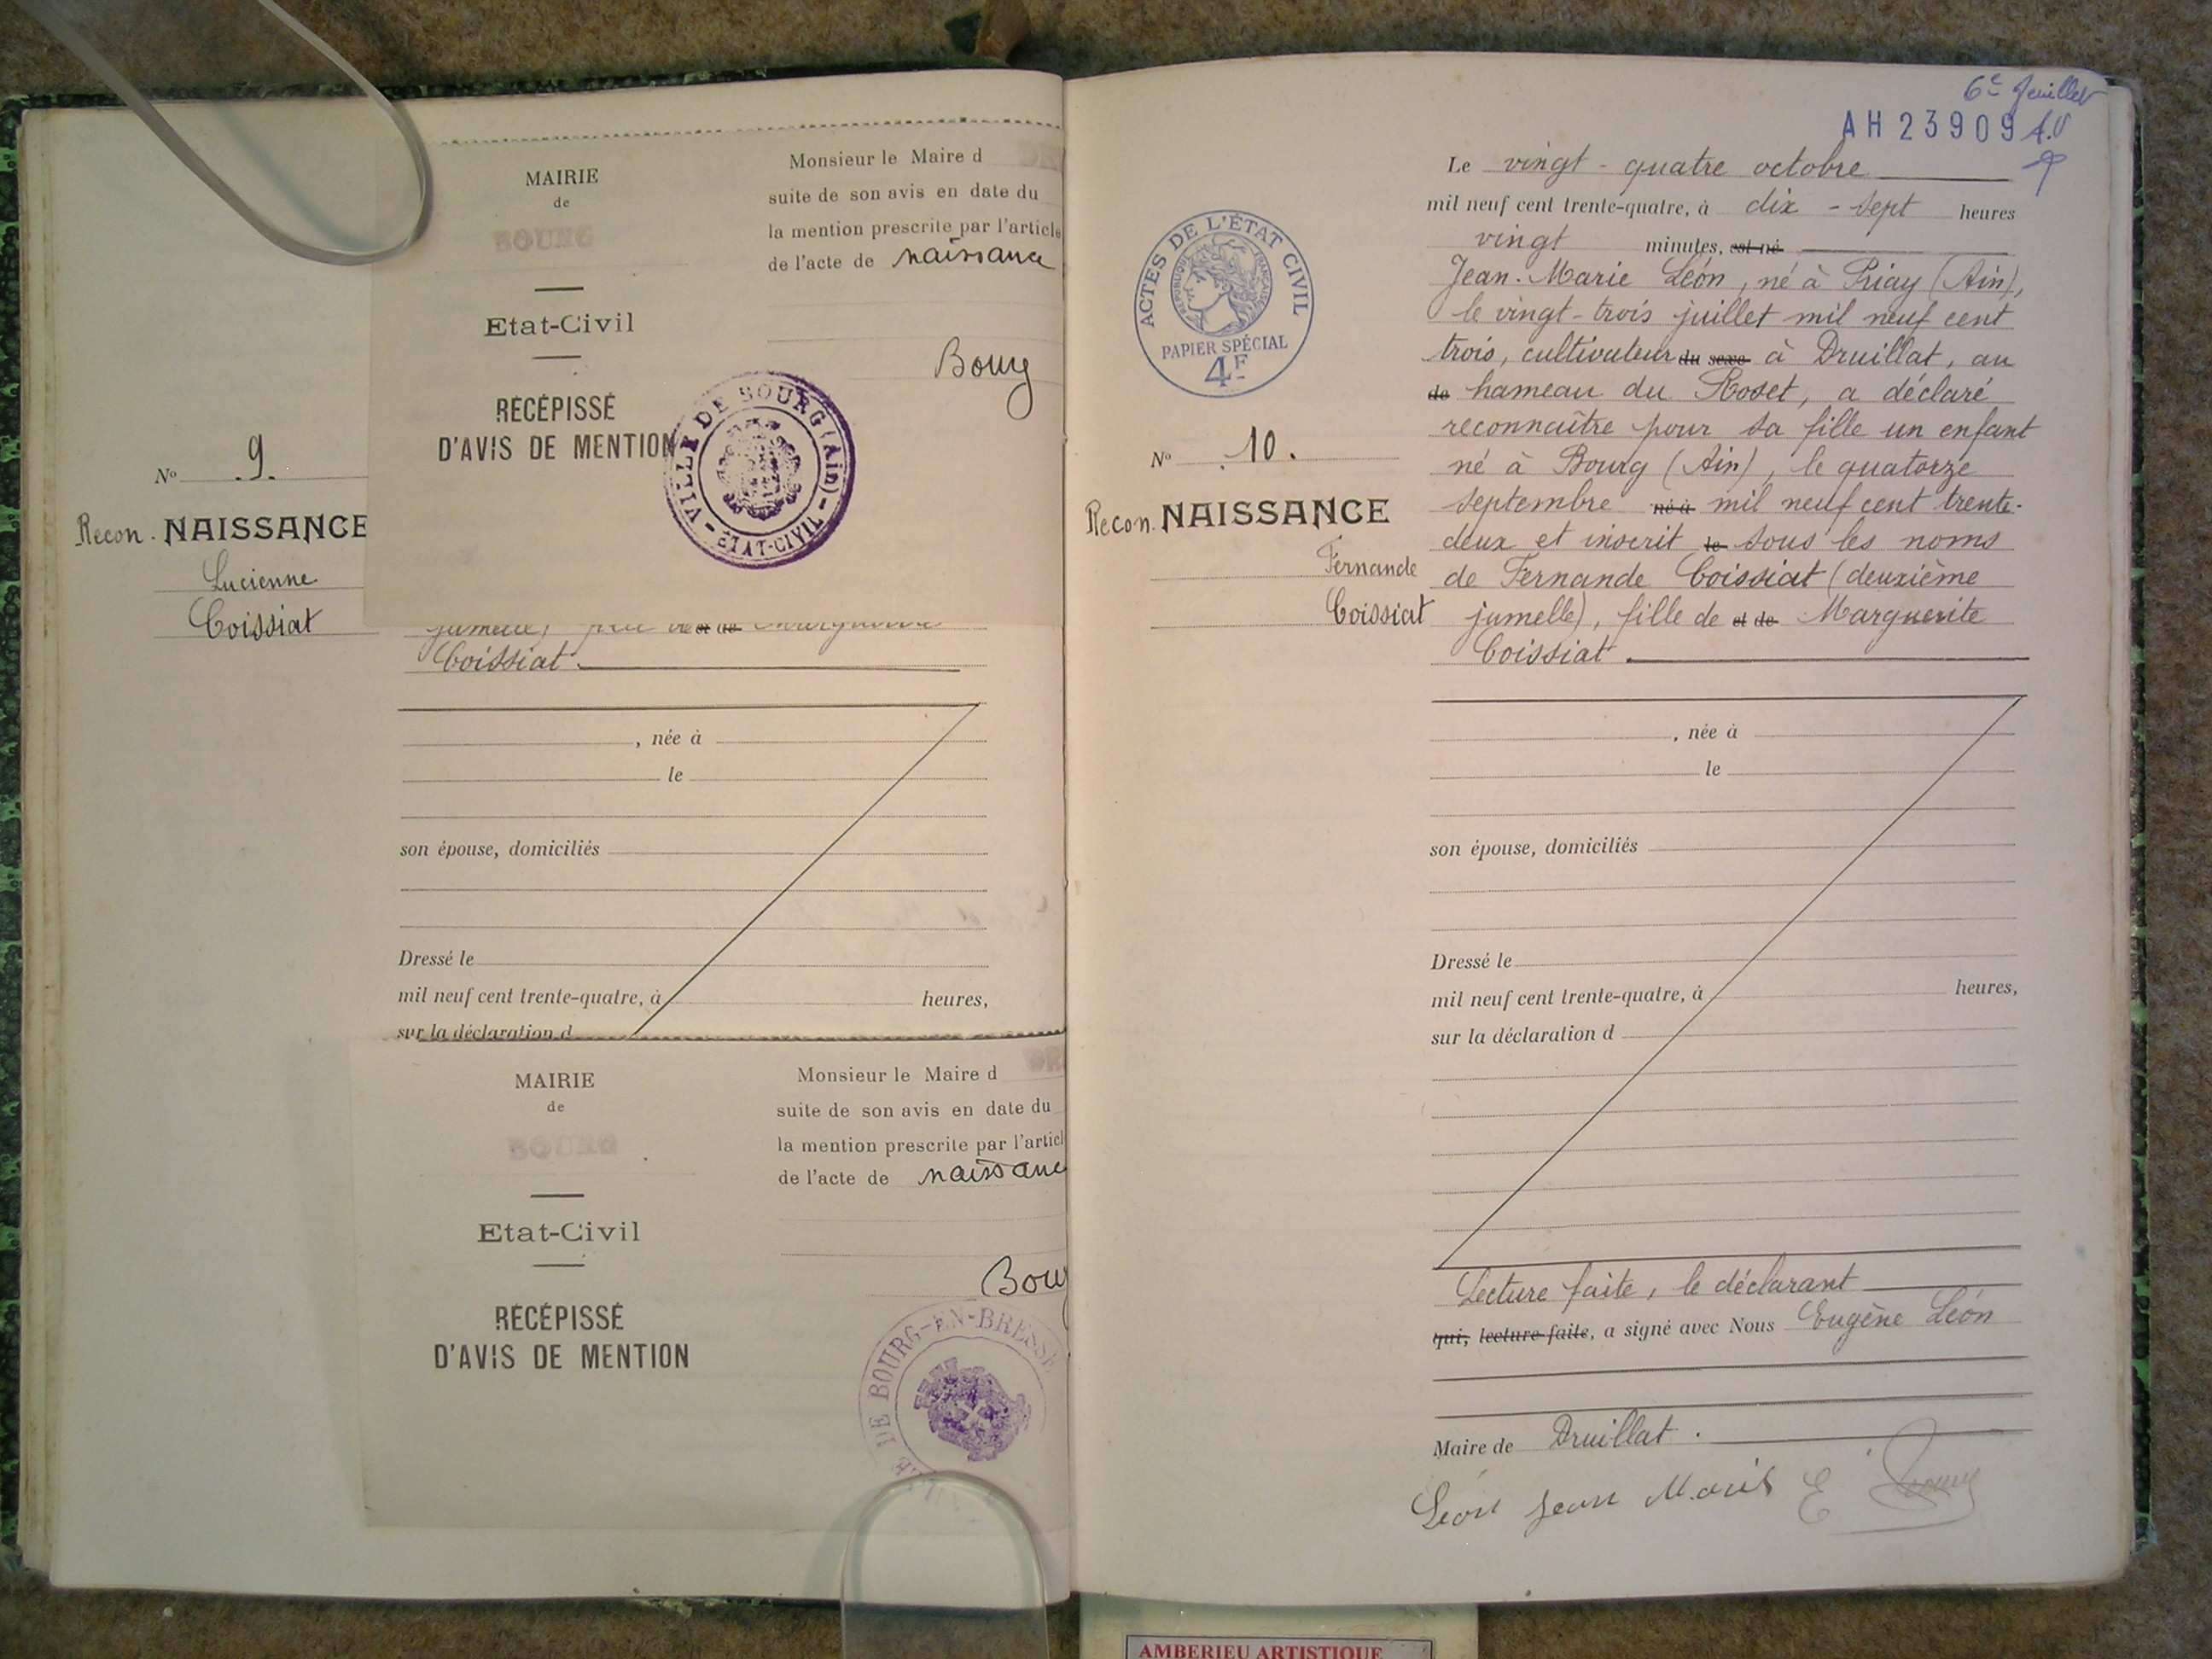 No 9.
Recon. NAISSANCE
Lucienne
Coissiat
MAIRIE
de
BOURG
Etat-Civil
RÉCÉPISSÉ
D'AVIS DE MENTION
Monsieur le Maire d
suite de son avis en date du
la mention prescrite par l'article
de l'acte de naissance
Bourg
VILLE DE BOURG (Ain) - ÉTAT-CIVIL -
Coissiat.
, née à
le
son épouse, domiciliés
Dressé le
mil neuf cent trente-quatre, à heures,
sur la déclaration d
MAIRIE
de
BOURG
Etat-Civil
RÉCÉPISSÉ
D'AVIS DE MENTION
Monsieur le Maire d
suite de son avis en date du
la mention prescrite par l'articl
de l'acte de naissanc
Bour
DE BOURG-EN-BRESSE
6e feuillet
AH 23909
ACTES DE L'ÉTAT CIVIL
RÉPUBLIQUE FRANÇAISE
PAPIER SPÉCIAL
4F
No 10.
Recon. NAISSANCE
Fernande
Coissiat
Le vingt-quatre octobre
mil neuf cent trente-quatre, à dix-sept heures
vingt minutes, est né
Jean-Marie Léon, né à Priay (Ain),
le vingt-trois juillet mil neuf cent
trois, cultivateur du sexe à Druillat, au
de hameau du Roset, a déclaré
reconnaître pour sa fille un enfant
né à Bourg (Ain), le quatorze
septembre né à mil neuf cent trente-
deux et inscrit le sous les noms
de Fernande Coissiat (deuxième
jumelle), fille de et de Marguerite
Coissiat.
, née à
le
son épouse, domiciliés
Dressé le
mil neuf cent trente-quatre, à heures,
sur la déclaration d
Lecture faite, le déclarant
qui, lecture faite, a signé avec Nous Eugène Léon
Maire de Druillat.
Léon Jean Marie E
AMBERIEU ARTISTIQUE